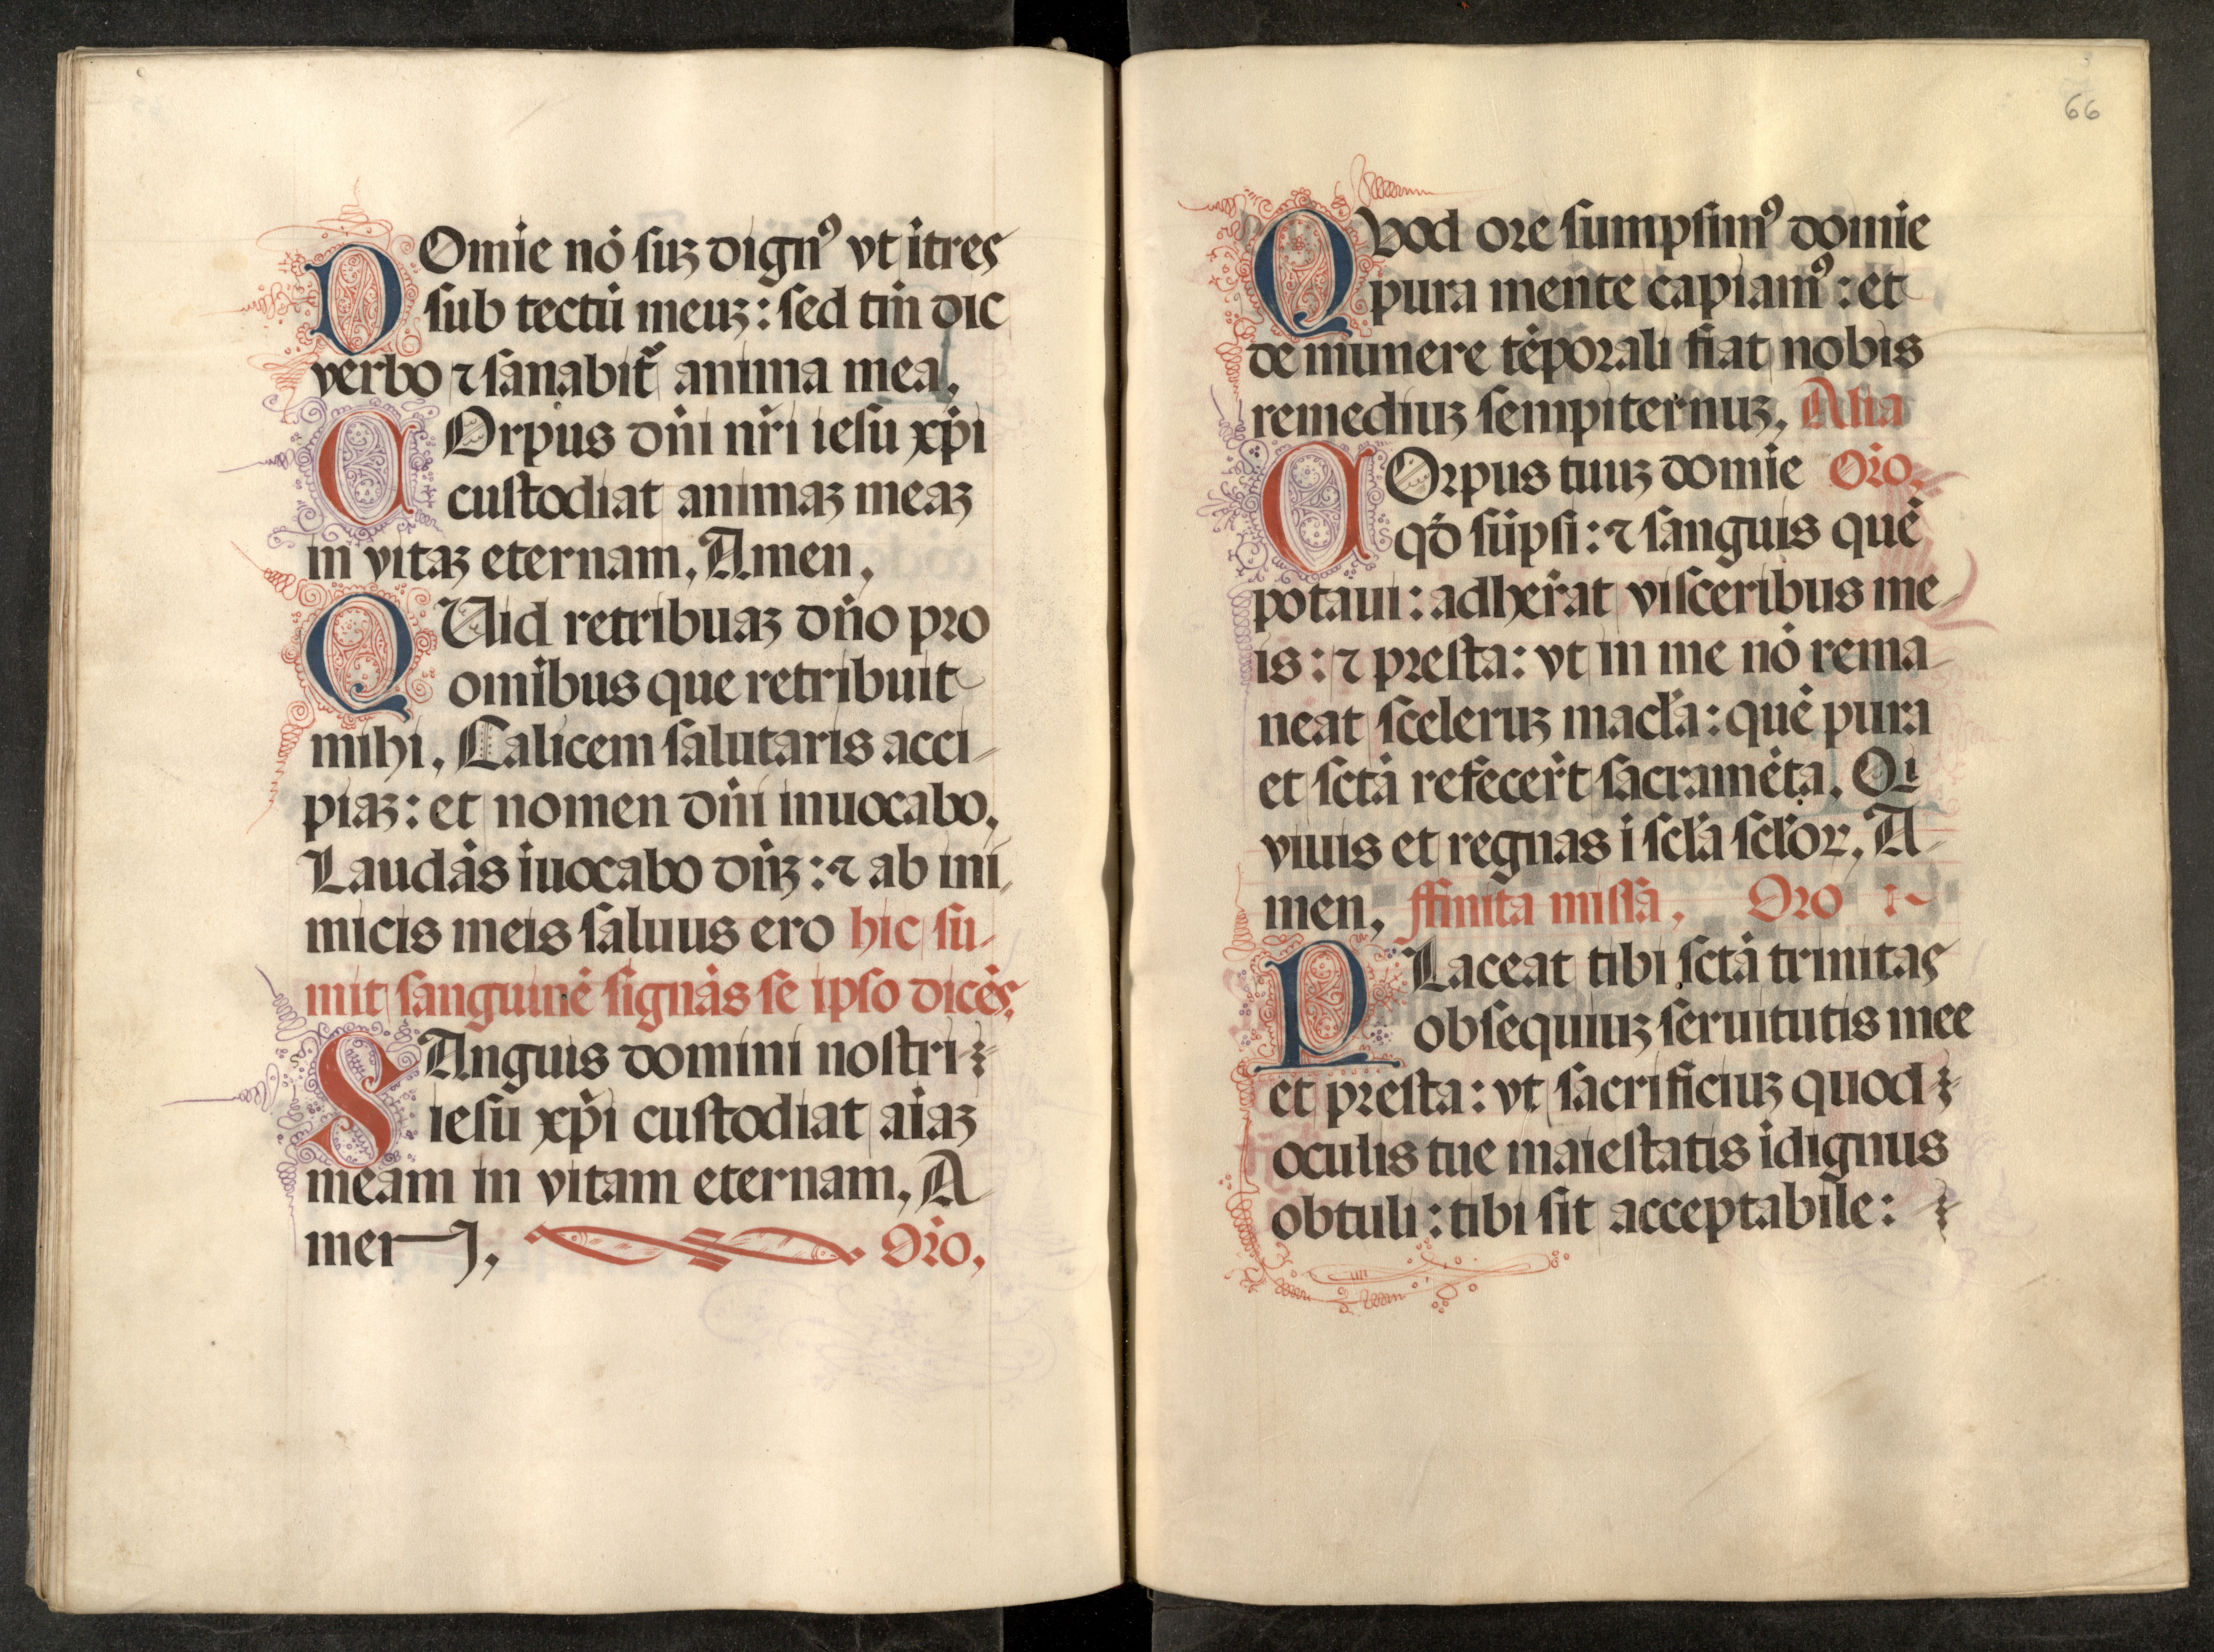 DOmīe nō suꝫ dignꝰ vt ītres
sub tectū meuꝫ: sed tm̄ dic
verbo ⁊ sanabit᷑ anima mea.
COrpus dn̄i nr̄i iesu xp̄i
custodiat animaꝫ meaꝫ
in vitaꝫ eternam. Amen.
QUid retribuaꝫ dn̄o pro
omībus que retribuit
mihi. Calicem salutaris acci-
piaꝫ: et nomen dn̄i inuocabo.
Laudās īuocabo dn̄ꝫ: ⁊ ab ini-
micis meis saluus ero hic su-
mit sanguinē signās se ipso dicēs.
SAnguis domini nostri
iesu xp̄i custodiat aīaꝫ
meam in vitam eternam. A-
men. Oro.
66
QVod ore sumpsimꝰ domīe
pura mente capiamꝰ: et
de munere tēporali fiat nobis
remediuꝫ sempiternuꝫ. Alia
COrpus tuuꝫ domīe Oro.
qd̄ sūpsi: ⁊ sanguis quē
potaui: adher̄at visceribus me-
is: ⁊ presta: vt in me nō rema-
neat sceleruꝫ macl̄a: quē pura
et sctā refecer̄t sacramēta. Qi
viuis et regnas ī scl̄a scl̄oꝝ. A-
men. ffinita missā. Oro
PLaceat tibi sctā trinitas
obsequiuꝫ seruitutis mee
et presta: vt sacrificiuꝫ quod
oculis tue maiestatis īdignus
obtuli: tibi sit acceptabile: